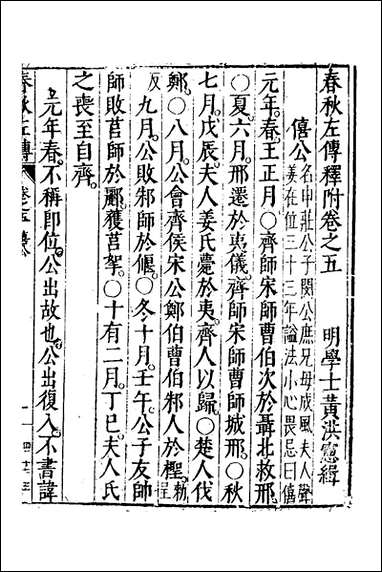 春秋左傳釋附卷之五
明學士黃洪憲緝
僖公名申莊公子閔公庶兄母成風夫人聲
姜在位三十三年謚法小心畏忌曰僖
元年。春。王正月。○齊師宋師曹伯次於聶北救邢。
○夏。六月。邢遷於夷儀。齊師宋師曹師城邢。○秋
七月。戊辰。夫人姜氏薨於夷。齊人以歸。○楚人伐
鄭。○八月。公會齊侯宋公鄭伯曹伯邾人於檉。勑呈
反九月。公敗邾師於偃。○冬十月。壬午。公子友帥
師敗莒師於酈。獲莒挐。○十有二月。丁巳。夫人氏
之喪至自齊。
元年春。不稱即位。公出故也。公出復入。不書諱
春秋左傳 卷之五 僖公